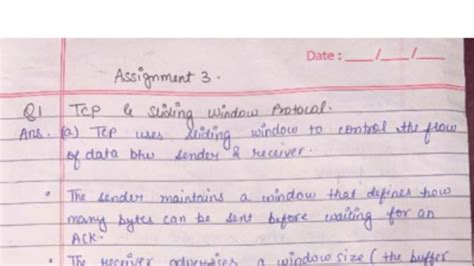 Date : ___/___/___
Assignment 3.
Q1 TCP & Sliding Window Protocol.
Ans. (a) TCP uses sliding window to control the flow
of data btw sender & receiver.
• The sender maintains a window that defines how
many bytes can be sent before waiting for an
ACK.
The receiver advertises a window size ( the buffer